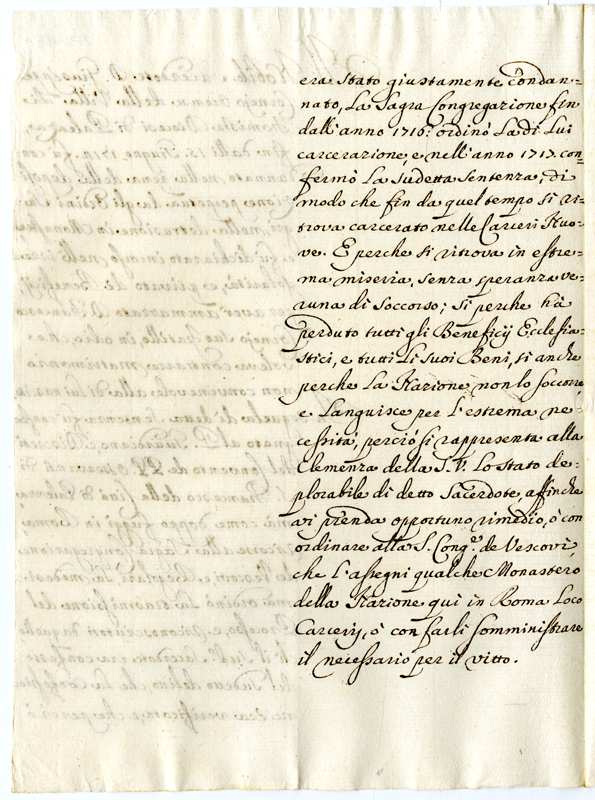 era stato giustamente condan=
nato, La Sagra Congregazione fin
dall'anno 1716: ordinò La di Lui
carcerazione, e nell'anno 1717. con
fermò La sudetta Sentenza, di
modo che fin da quel tempo si ri=
trova carcerato nelle Carceri Nuo=
ve. E perche si ritrova in estre=
ma miseria, senza speranza ve=
runa di Soccorso; si perche hà
perduto tutti gli Beneficij Ecclesia=
stici, e tutti Li Suoi Beni, si anche
perche La Nazione non lo soccorre
e Languisce per l'estrema ne=
cessità, perciò si rappresenta alla
Clemenza della S. V. Lo stato de=
plorabile di detto Sacerdote, affinche
vi prenda opportuno rimedio, ò con
ordinare alla S. Cong.e de Vescovi
che l'assegni qualche Monastero
della Nazione quì in Roma Loco
Carcerij, ò con farli somministrare
il necessario per il vitto.